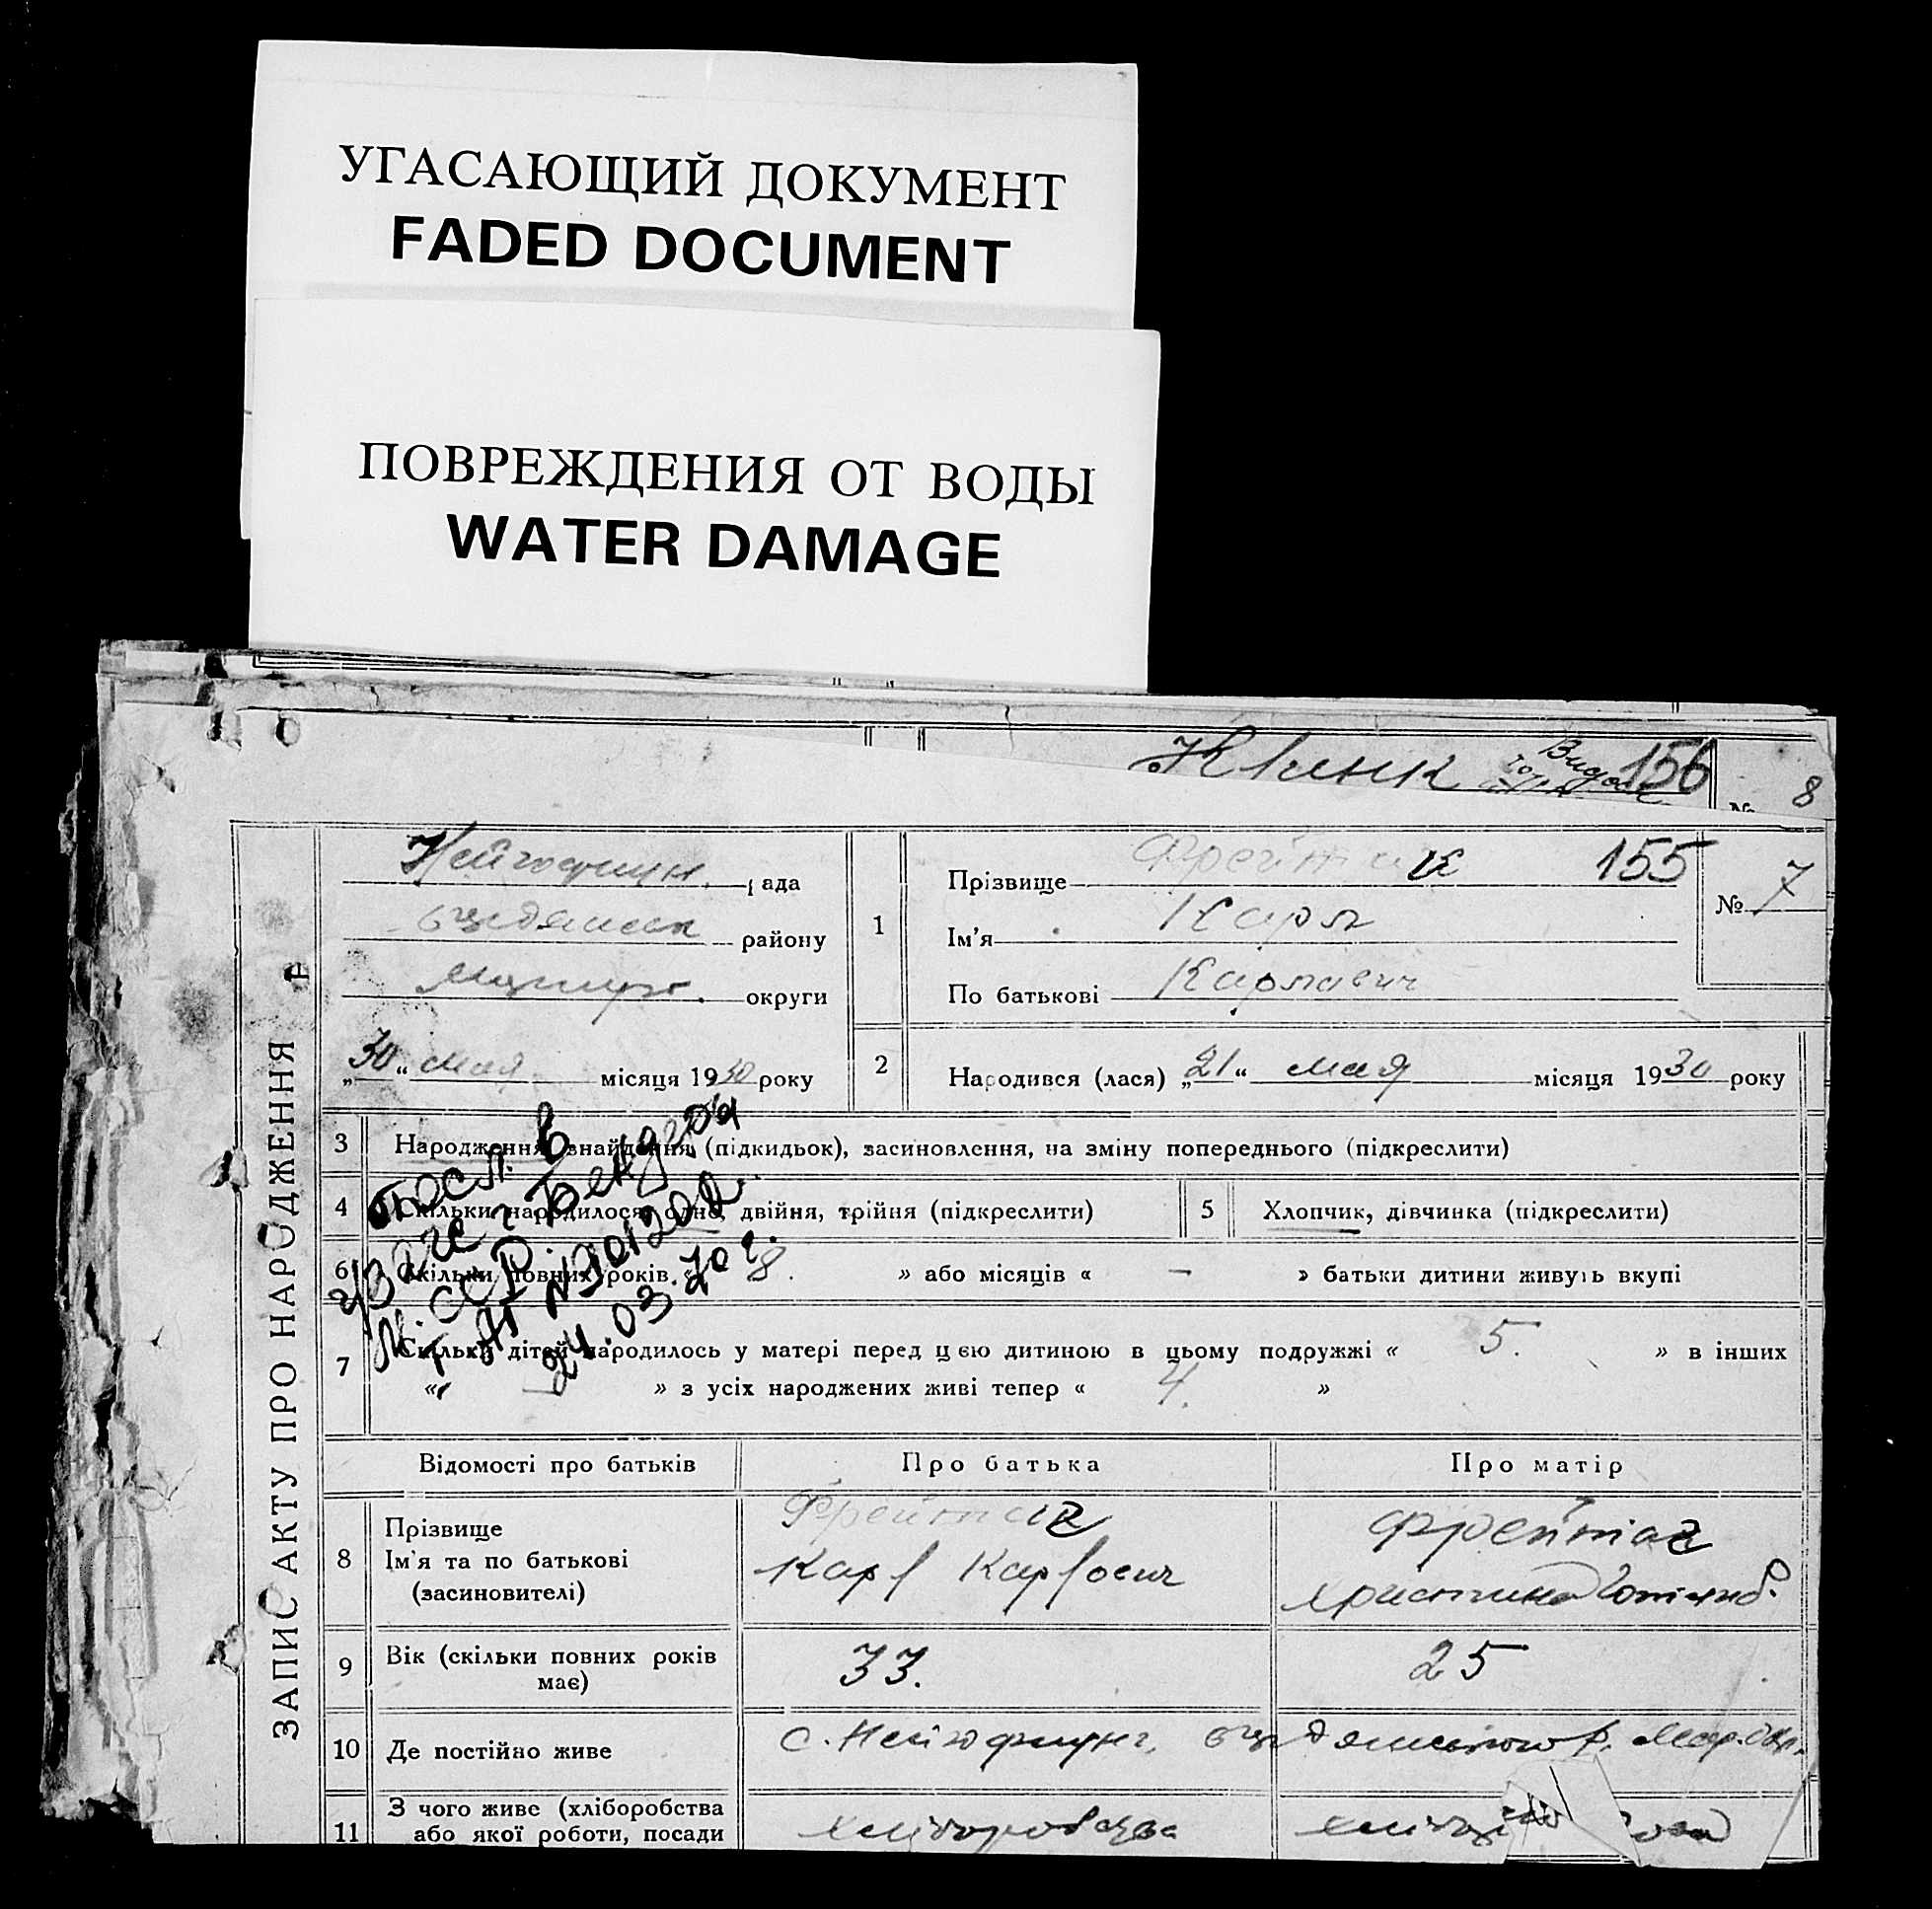 УГАСАЮЩИЙ ДОКУМЕНТ
FADED DOCUMENT
ПОВРЕЖДЕНИЯ ОТ ВОДЫ
WATER DAMAGE
156
№ 8
ЗАПИС АКТУ ПРО НАРОДЖЕННЯ
рада
району
округи
„30“ мая місяця 1930 року
1
Прізвище Фрейтаг 155
№ 7
Ім'я Карл
По батькові Карлович
2
Народився (лася) „21“ мая місяця 1930 року
3 Народження, знайдення, (підкидьок), засиновлення, на зміну попереднього (підкреслити)
4 Скільки народилося: одне, двійня, трійня (підкреслити)
5 Хлопчик, дівчинка (підкреслити)
6 Скільки повних років « 8. » або місяців « — » батьки дитини живуть вкупі
7 Скільки дітей народилось у матері перед цією дитиною в цьому подружжі « 5. » в інших
« — » з усіх народжених живі тепер « 4. »
24.03.70 г.
Відомості про батьків
Про батька
Про матір
8
Прізвище
Ім'я та по батькові
(засиновителі)
Фрейтаг
Карл Карлович
Фрейтаг
Христина Готлиб.
9 Вік (скільки повних років
має)
33.
25
10 Де постійно живе
с.
11
З чого живе (хліборобства
або якої роботи, посади
хліборобство